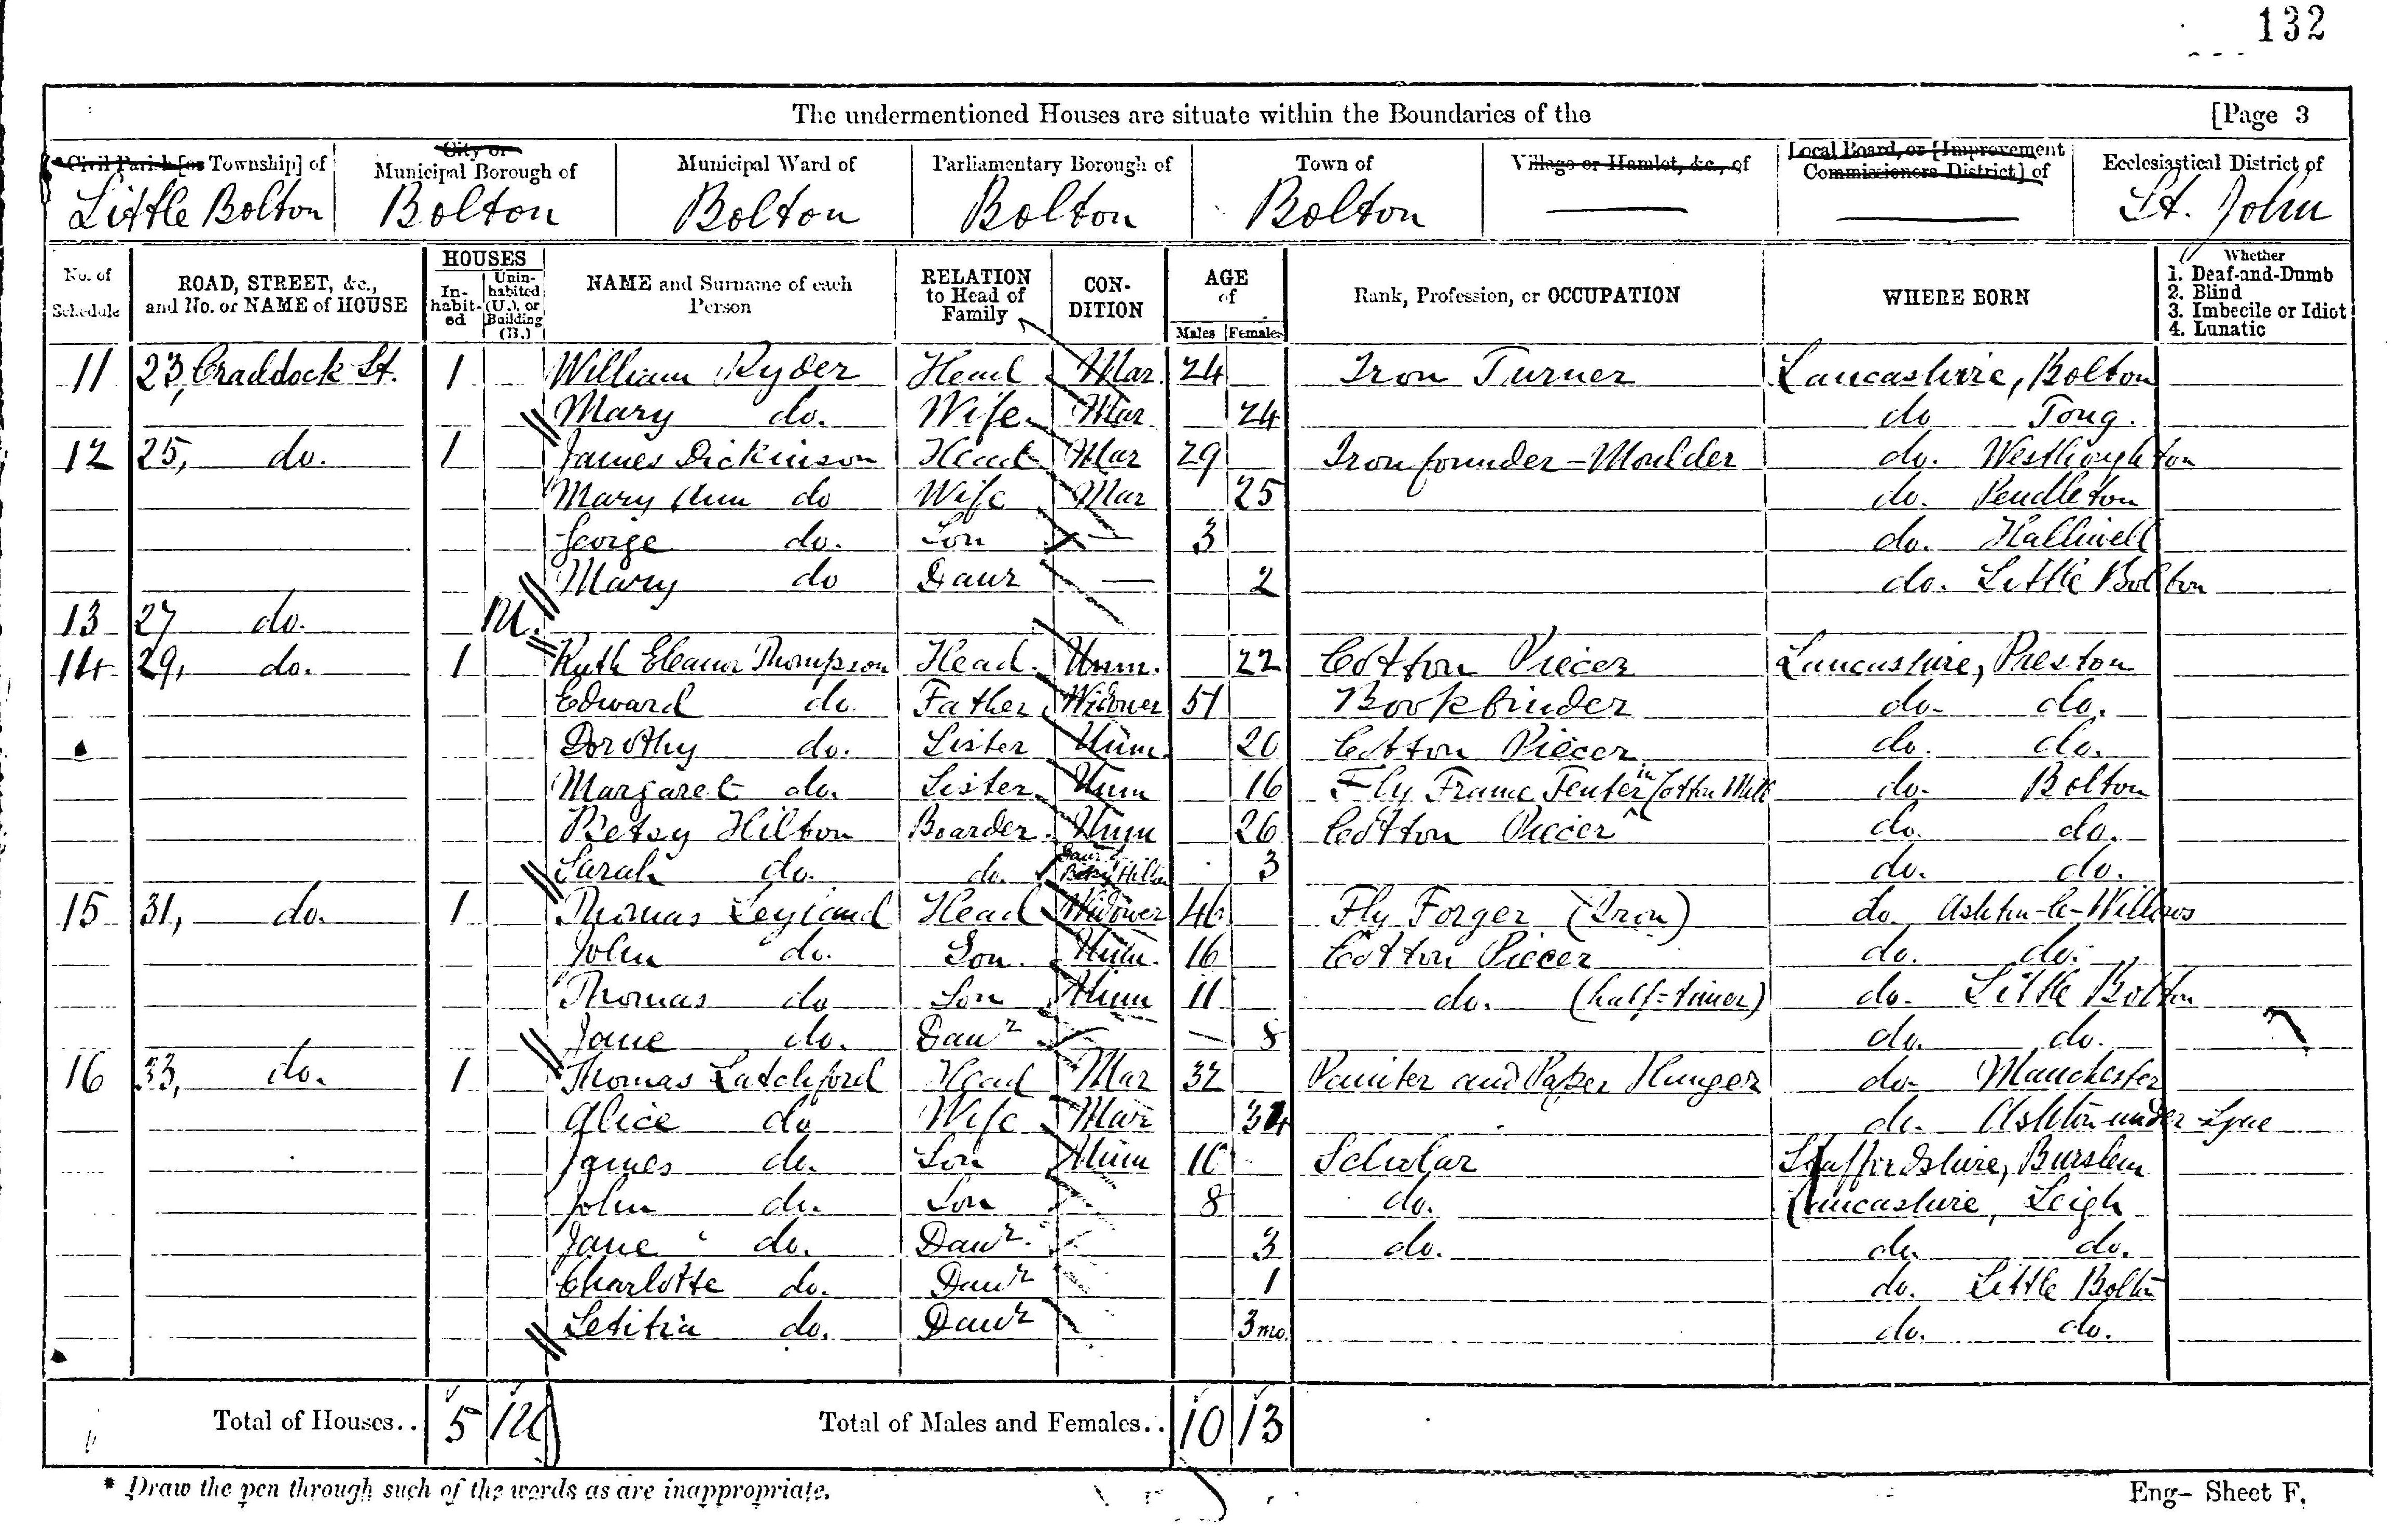 132
The undermentioned Houses are situate within the Boundaries of the [Page 3
Civil Parish [or Township] of City or Municipal Borough of Municipal Ward of Parliamentary Borough of Town of Village or Hamlet, &c., of Local Board, or [Improvement Commissioners District] of Ecclesiastical District of
Little Bolton Bolton Bolton Bolton Bolton — — St. John
No. of Schedule ROAD, STREET, &c., and No. or NAME of HOUSE HOUSES In-habit-ed Unin-habited (U.), or Building (B.) NAME and Surname of each Person RELATION to Head of Family CON-DITION AGE of Males Females Rank, Profession, or OCCUPATION WHERE BORN Whether 1. Deaf-and-Dumb 2. Blind 3. Imbecile or Idiot 4. Lunatic
11 23, Craddock St. 1 William Ryder Head Mar. 24 Iron Turner Lancashire, Bolton
Mary do. Wife Mar 24 do Tong.
12 25, do. 1 James Dickinson Head Mar 29 Ironfounder-Moulder do. Westhoughton
Mary Ann do Wife Mar 25 do. Pendleton
George do. Son — 3 do. Halliwell
Mary do Daur — 2 do. Little Bolton
13 27 do. 1U.
14 29, do. 1 Ruth Eleanor Thompson Head. Unm. 22 Cotton Piecer Lancashire, Preston
Edward do. Father Widower 51 Bookbinder do. do.
Dorothy do. Sister Unm. 20 Cotton Piecer do. do.
Margaret do. Sister Unm 16 Fly Frame Tenter in Cotton Mill do. Bolton
Betsy Hilton Boarder Unm 26 Cotton Piecer do. do.
Sarah do. do. Daur of Betsy Hilton 3 do. do.
15 31, do. 1 Thomas Leyland Head Widower 46 Fly Forger (Iron) do. Ashton-le-Willows
John do. Son. Unm. 16 Cotton Piecer do. do.
Thomas do Son Unm 11 do. (half-timer) do. Little Bolton
Jane do. Daur — 8 do. do.
16 33, do. 1 Thomas Latchford Head Mar 32 Painter and Paper Hanger do. Manchester
Alice do Wife Mar 34 do. Ashton-under-Lyne
James do. Son Unm 10 Scholar Staffordshire, Burslem
John do. Son 8 do. Lancashire, Leigh
Jane do. Daur. 3 do. do. do.
Charlotte do. Daur 1 do. Little Bolton
Letitia do. Daur 3 mo. do. do.
Total of Houses.. 5 1U Total of Males and Females.. 10 13
* Draw the pen through such of the words as are inappropriate.
Eng- Sheet F.